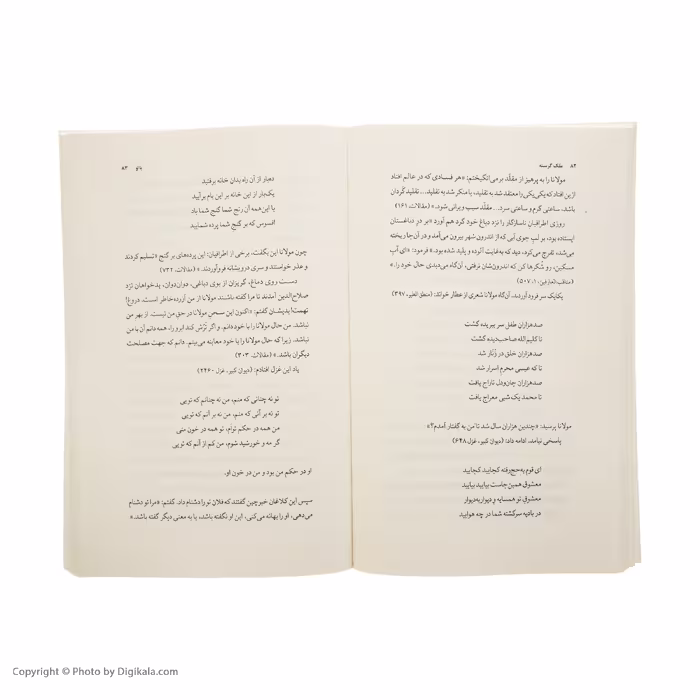 ۸۲ ملک گرسنه
مولانا را به پرهیز از مقلّد برمی‌انگیختم: «هر فسادی که در عالم افتاد
ازین افتاد که یکی یکی را معتقد شد به تقلید، یا منکر شد به تقلید... تقلید گردان
باشد، ساعتی گرم و ساعتی سرد... مقلّد سبب ویرانی شود.» (مقالات، ۱۶۱)
روزی اطرافیان ناسازگار را نزد دباغ خود گرد هم آورد «بر در دباغستان
ایستاده بود، بر لب جوی آبی که از اندرون شهر بیرون می‌آمد و در آن‌جا ریخته
می‌شد، تفرج می‌کرد، دید که به‌غایت آلوده و پلید شده بود.» فرمود: «ای آبِ
مسکین، رو شُکرها کن که اندرون‌شان نرفتی، آن‌گاه می‌دیدی حال خود را.»
(مناقب‌العارفین، ۱: ۵۰۷)
یکایک سر فرود آوردند. آن‌گاه مولانا شعری از عطار خواند: (منطق‌الطیر، ۳۹۷)
صدهزاران طفل سر ببریده گشت
تا کلیم‌الله صاحب‌دیده گشت
صدهزاران خلق در زنّار شد
تا که عیسی محرم اسرار شد
صدهزاران جان‌ودل تاراج یافت
تا محمد یک شبی معراج یافت
مولانا پرسید: «چندین هزاران سال شد تا من به گفتار آمدم؟»
پاسخی نیامد. ادامه داد: (دیوان کبیر، غزل ۶۴۸)
ای قوم به‌حج‌رفته کجایید کجایید
معشوق همین‌جاست بیایید بیایید
معشوق تو همسایه و دیواربه‌دیوار
در بادیه سرگشته شما در چه هوایید
۸۳
ده‌بار از آن راه بدان خانه برفتید
یک‌بار از این خانه بر این بام برآیید
با این‌همه آن رنج شما گنج شما باد
افسوس که بر گنج شما پرده شمایید
چون مولانا این بگفت، برخی از اطرافیان: این پرده‌های بر گنج «تسلیم کردند
و عذر خواستند و سری درویشانه فرو آوردند.» (مقالات، ۷۳۲)
دست روی دماغ، گریزان از بوی دباغی، دوان‌دوان، بدخواهان نزد
صلاح‌الدین آمدند تا مرا گفته باشند مولانا از من آزرده‌خاطر است. دروغ!
تهمت! بدیشان گفتم: «اکنون این سخن مولانا در حق من نیست. از بهر من
نباشد. من حال مولانا را با خود دانم. و اگر تُرُش کند ابرو را، همه دانم آن با من
نباشد. زیرا که حال مولانا را با خود معاینه می‌بینم. دانم که جهت مصلحت
دیگران باشد.» (مقالات، ۳۰۳)
یاد این غزل افتادم: (دیوان کبیر، غزل ۲۴۶۰)
تو نه چنانی که منم، من نه چنانم که تویی
تو نه بر آنی که منم، من نه بر آنم که تویی
من همه در حکم توام، تو همه در خون منی
گر مه و خورشید شوم، من کم از آنم که تویی
او در حکم من بود و من در خون او.
سپس این کلاغان خبرچین گفتند که فلان تو را دشنام داد. گفتم: «مرا تو دشنام
می‌دهی، او را بهانه می‌کنی، این او نگفته باشد، یا به معنی دیگر گفته باشد.»
Copyright © Photo by Digikala.com